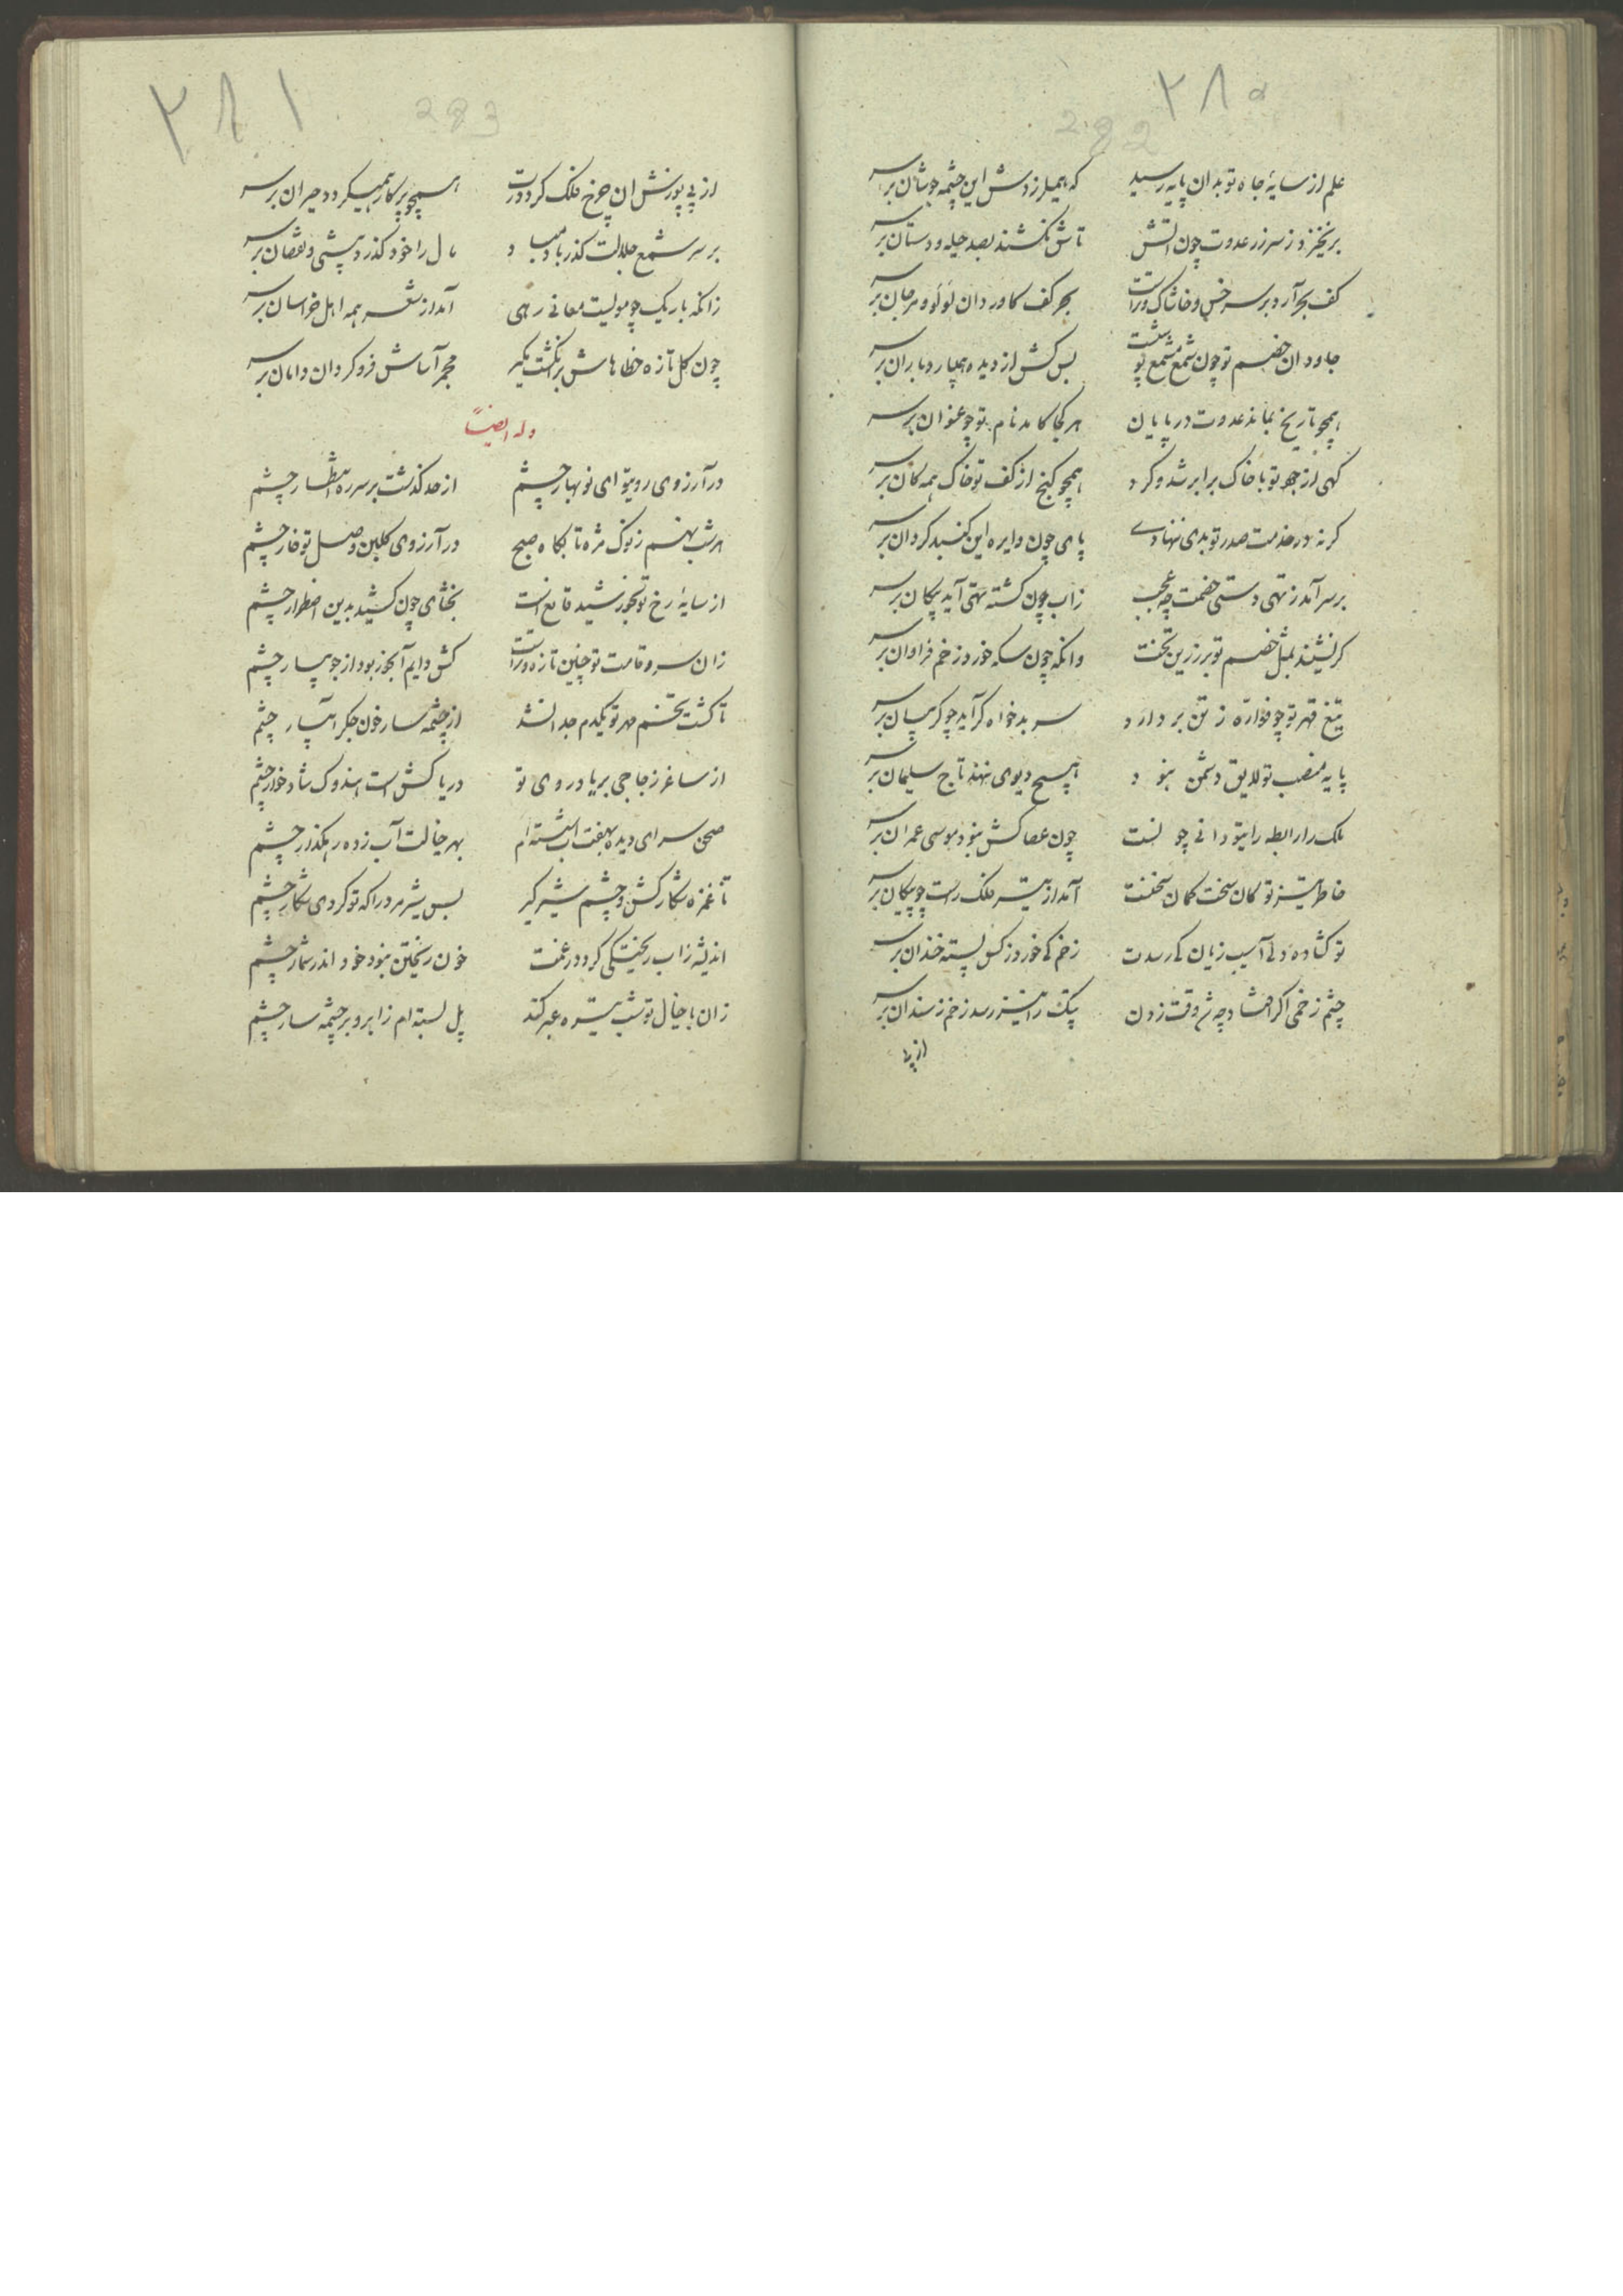 ۲۸۰
282
علم از سایهٔ جاه تو بدان پایه رسید که همیلرزدش این چشمه جوشان بر سر
بر نخیزد ز سر زر عدوت چون آتش تاش نکشند بصد حیله و دستان بر سر
کف بحر آرد بر سر خس و خاشاک و تراست بحر کف کاورد آن لؤلؤ و مرجان بر سر
جاودان خصم تو چون شمع بس کش از دیده همیبارد باران بر سر
همچو تاریخ بماند عدوت در پایان هر کجا کامد نام تو چو عنوان بر سر
کهی از جود تو با خاک برابر شد و کرد همچو کنج از کف تو خاک همه کان بر سر
کر نه در خدمت صدر تو بدی ننهادی پای چون دایره این کنبد کردان بر سر
بر سر آمد ز تهی دستی خصمت چه عجب زاب چون کشته تهی آید پنکان بر سر
کر نشیند بمثل خصم تو بر زرین تخت دانکه چون سکه خورد زخم فراوان بر سر
تیغ قهر تو چو فواره ز تن بردارد سر بدخواه کر آید چو کریبان بر سر
پایه منصب تو لایق دشمن نبود هیچ دیوی ننهد تاج سلیمان بر سر
ملک را رابطه رای تو دانی چونست چون عصا کش نبود موسی عمران بر سر
خاطر تیز تو کان سخت کمان سخنست آمد از تیر فلک راست چو پیکان بر سر
تو کشاده دلی آسیب زیان کی رسدت زخم کی خورد ز کس پسته خندان بر سر
چشم زخمی اکر افتاد چه شد وقت زدن پتک را نیز رسد زخم ز سندان بر سر
از پی
۲۸۱
283
از پی پوزش آن چرخ فلک کرد درت همچو پرکار همیکردد حیران بر سر
بر سر شمع جلالت کذر باد مباد مال را خود کذرد بیشی و نقصان بر سر
زانکه باریک چو مویست معانی رهی آمد از شعر همه اهل خراسان بر سر
چون کل تازه خطاهاش بر انکشت مکیر مجمر آساش فرو کردان دامان بر سر
وله ایضاً
در آرزوی روی تو ای نوبهار چشم از حد کذشت بر سر ره انتظار چشم
هر شب نهم ز نوک مژه تا بگاه صبح در آرزوی کلبن وصل تو خار چشم
از سایهٔ رخ تو بخورشید قانع است بخشای چون کشید بدین اضطرار چشم
زان سرو قامت تو چنین تازه و تراست کش دایم آبخور بود از جویبار چشم
تا کشت تخم مهر تو یکدم جدا نشد از چشمه سار خون جکر آبیار چشم
از ساغر زجاجی بر یاد روی تو دریا کش است هندوک شادخوار چشم
صحن سرای دیده بهفت آب شسته‌ام بهر خیالت آب زده رهکذار چشم
تا غمزه شکار کش و چشم شیر کیر بس شیر مرد را که تو کردی شکار چشم
اندیشه زاب ریختکی کرد در غمت خون ریختن نبود خود اندر شمار چشم
زان با خیال تو شب تیره عبر کند پل بسته‌ام ز ابرو بر چشمه سار چشم